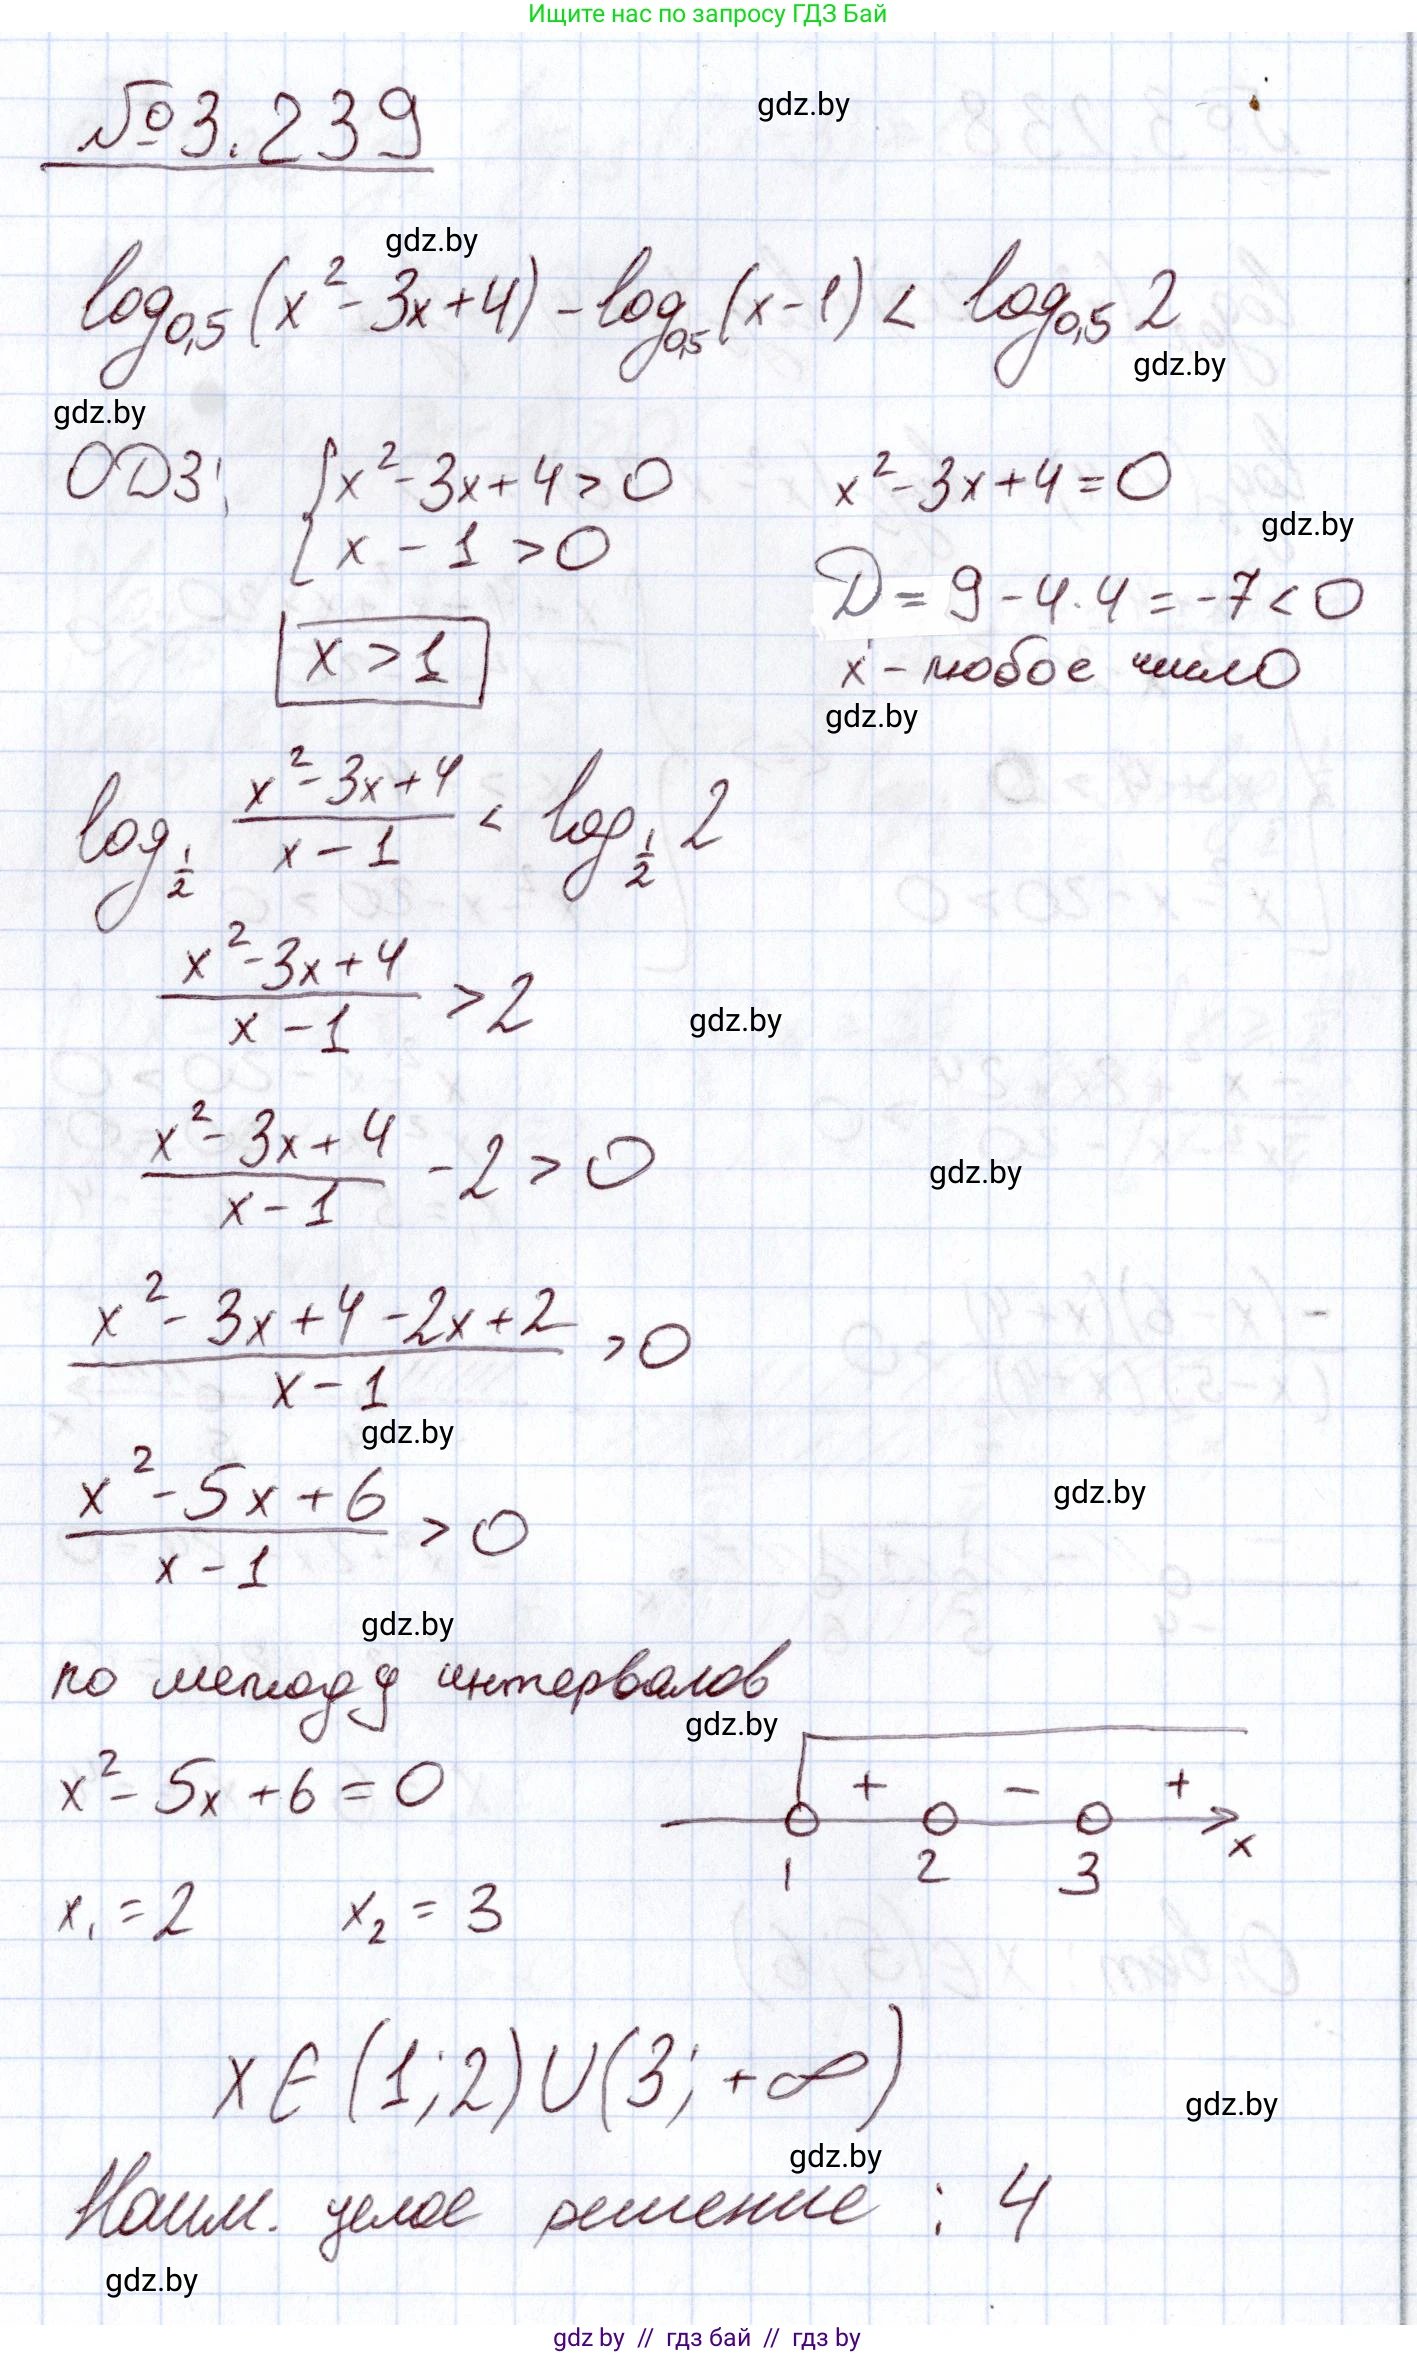 Ищите нас по запросу ГДЗ Бай
№3.239
gdz.by
gdz.by
log0,5 (x² - 3x + 4) - log0,5 (x - 1) < log0,5 2
gdz.by
gdz.by
ОДЗ: { x² - 3x + 4 > 0
x - 1 > 0
x > 1
x² - 3x + 4 = 0
gdz.by
D = 9 - 4·4 = -7 < 0
x - любое число
gdz.by
log1/2 (x² - 3x + 4)/(x - 1) < log1/2 2
(x² - 3x + 4)/(x - 1) > 2
gdz.by
(x² - 3x + 4)/(x - 1) - 2 > 0
gdz.by
(x² - 3x + 4 - 2x + 2)/(x - 1) > 0
gdz.by
(x² - 5x + 6)/(x - 1) > 0
gdz.by
gdz.by
по методу интервалов
gdz.by
x² - 5x + 6 = 0
+ - +
1 2 3 x
x₁ = 2 x₂ = 3
x ∈ (1; 2) ∪ (3; +∞)
gdz.by
gdz.by
Наим. целое решение : 4
gdz.by
gdz by // гдз бай // гдз by